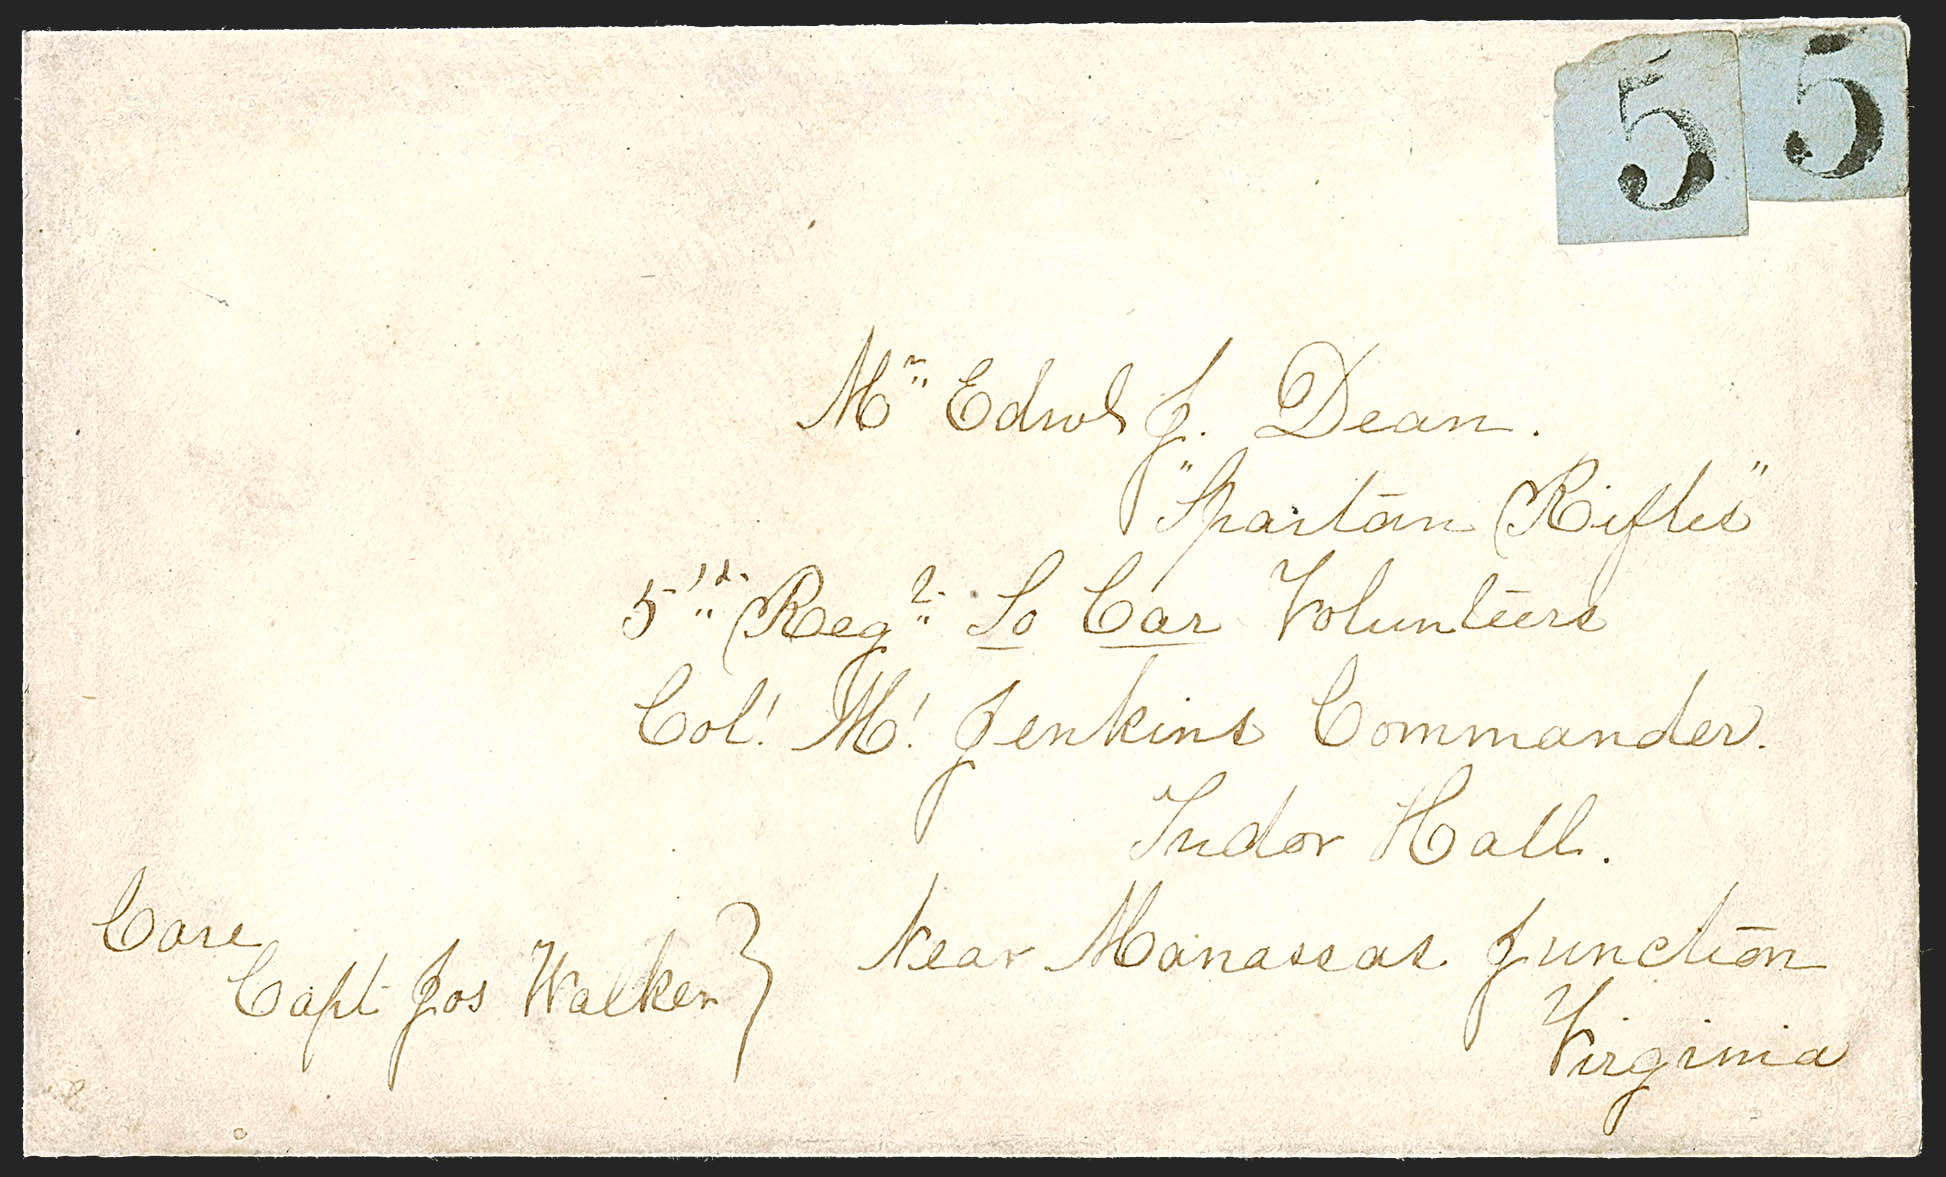 5 5
Mr. Edwd J. Dean.
"Spartan Rifles"
5'd. Regt. So Car Volunteers
Col! M! Jenkins Commander.
Tudor Hall.
Near Manassas Junction
Virginia
Care
Capt Jos Walker }